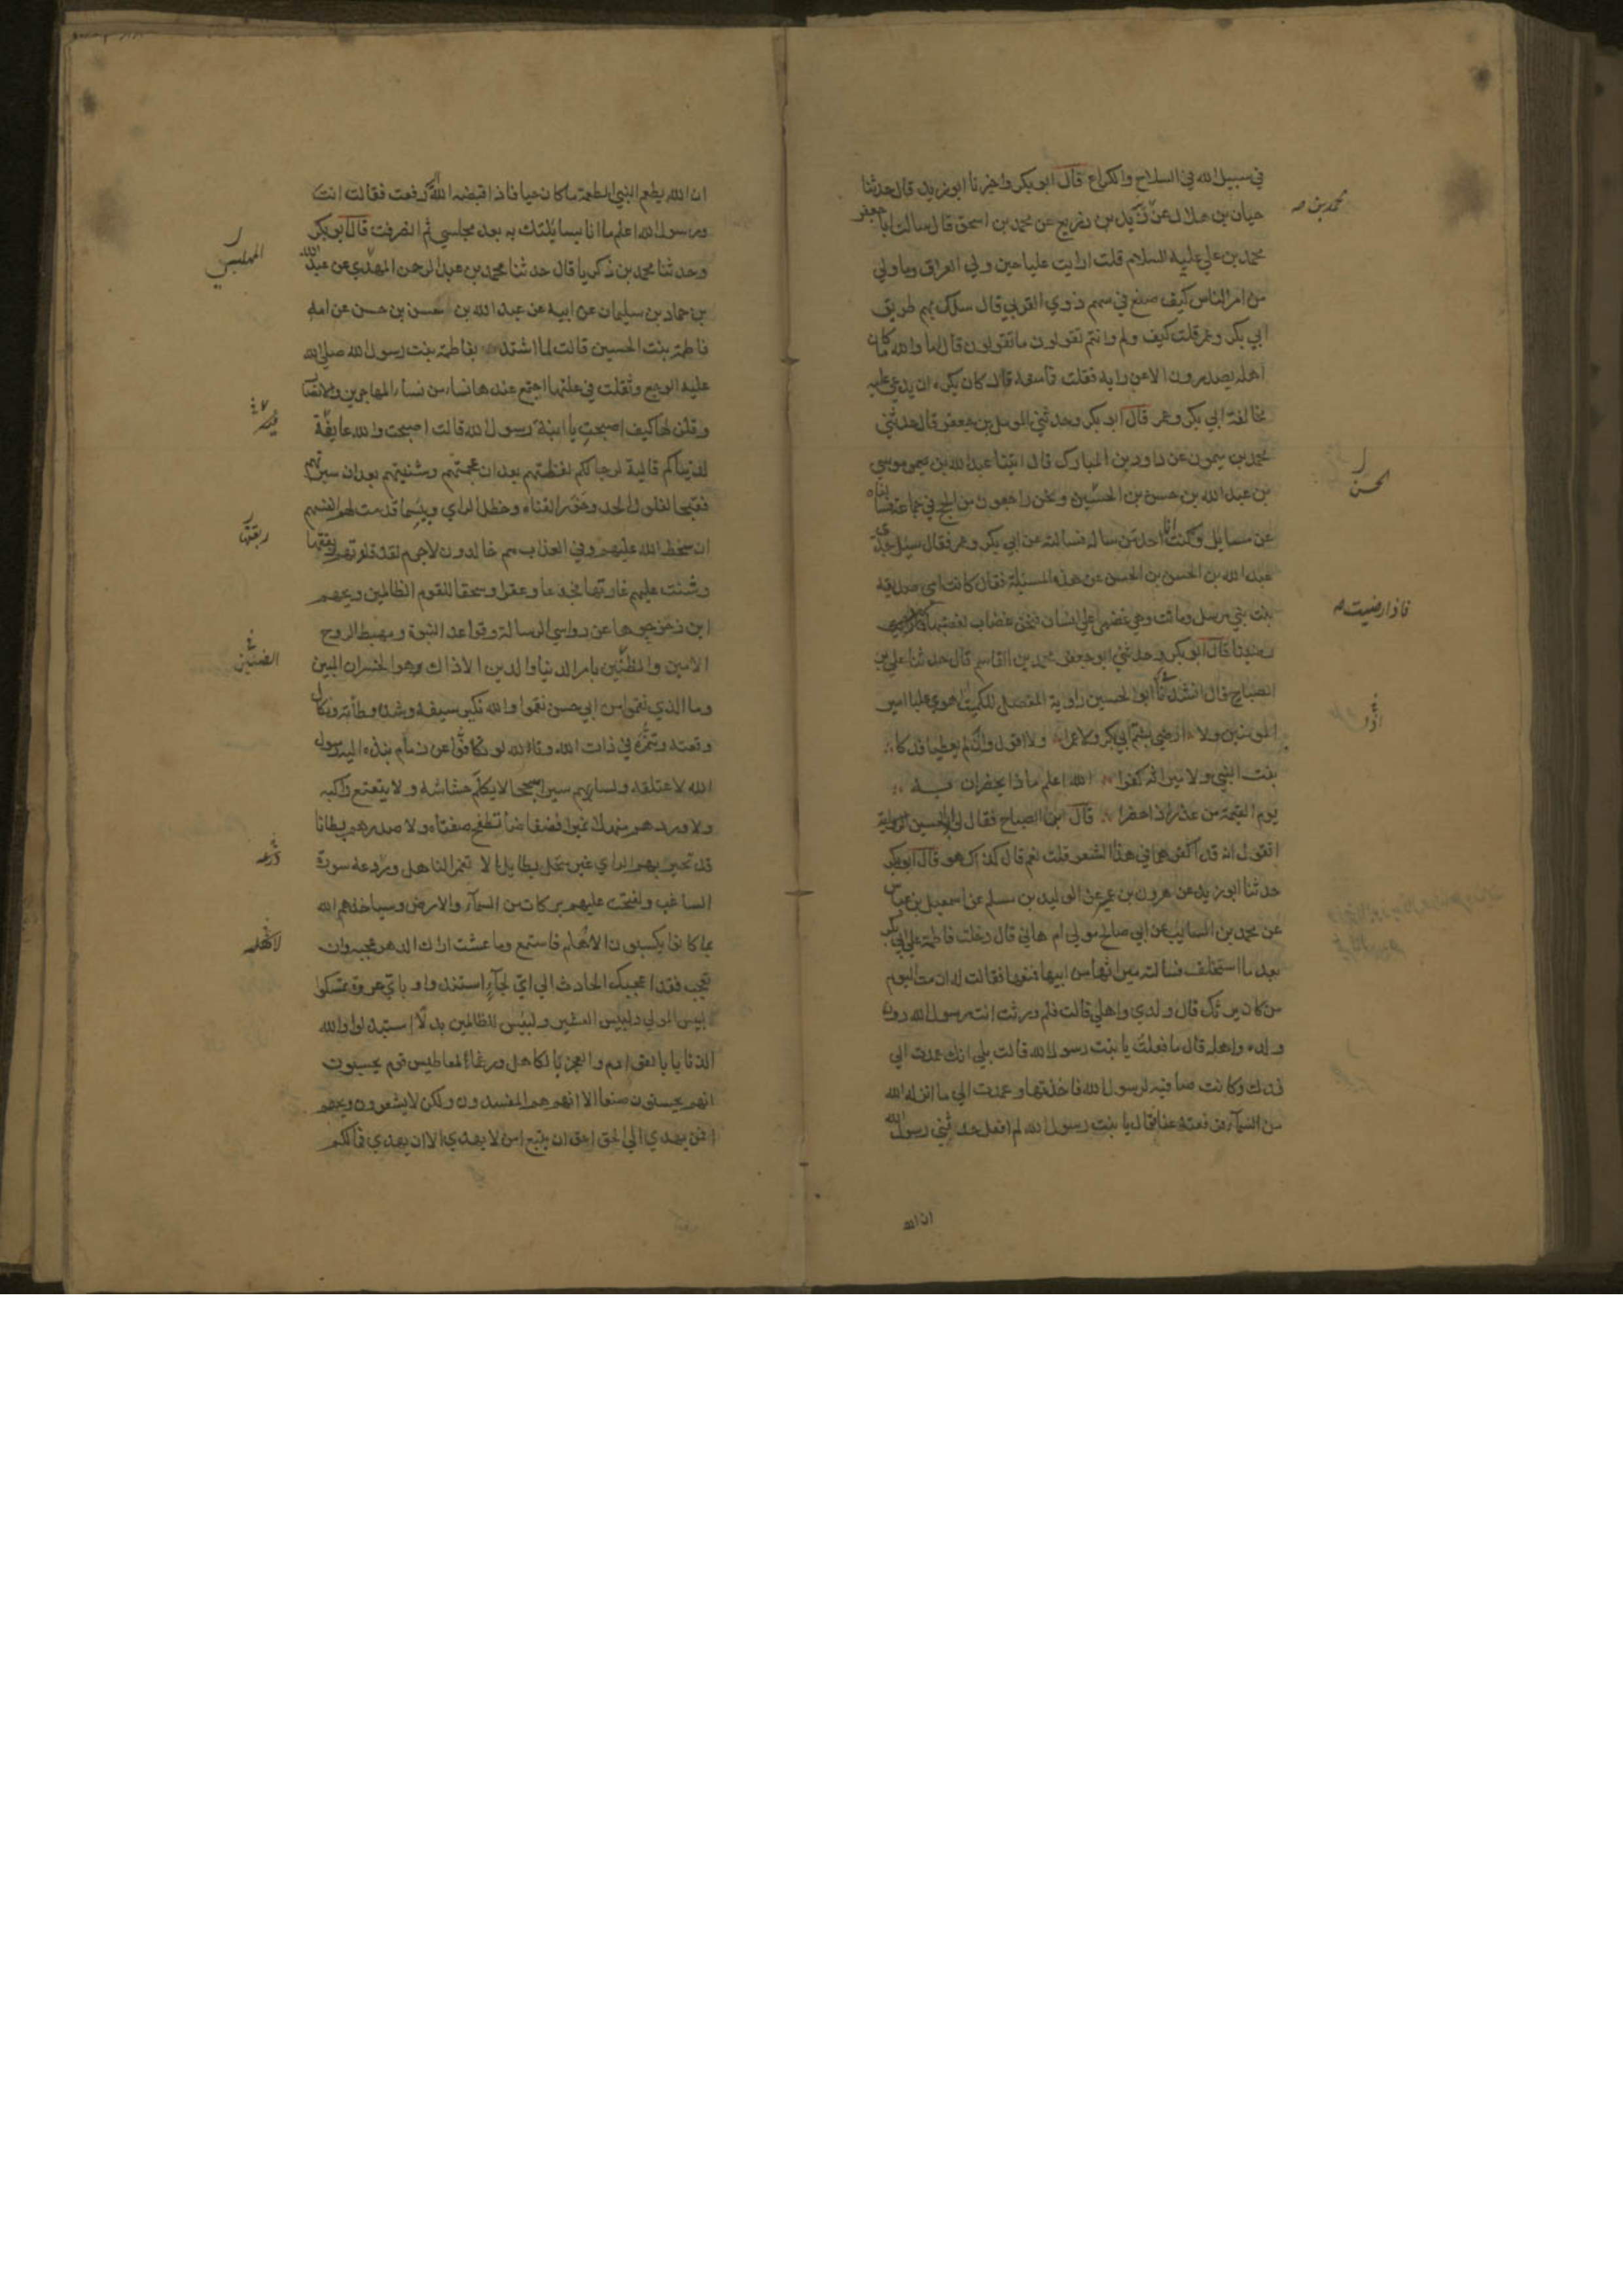 في سبيل الله في السلاح والكراع قال ابو بكر واخبرنا ابو زيد قال حدثنا
حيان بن هلال عن بن زريع عن محمد بن اسحق قال سالت ابا جعفر
محمد بن علي عليه السلام قلت ارايت عليا حين ولي العراق وما ولي
من امر الناس كيف صنع في سهم ذوي القربي قال سلك بهم طريق
ابي بكر وعمر قلت كيف ولم وانتم تقولون ما تقولون قال اما والله ما كان
اهله يصدرون الا عن رايه فقلت فما منعه قال كان يكره ان يدعي عليه
مخالفة ابي بكر وعمر قال ابو بكر وحدثني المومل بن جعفر قال حدثني
محمد بن ميمون عن داود بن المبارك قال اتينا عبد الله بن موسي
بن عبد الله بن حسن بن الحسين ونحن راجعون من الحج في جماعة فسالناه
عن مسايل وكنت احد من ساله فسالته عن ابي بكر وعمر فقال سئل جدي
عبد الله بن الحسن بن الحسن عن هذه المسئلة فقال كانت امي صديقه
بنت نبي مرسل وماتت وهي غضبي علي انسان فنحن غضاب لغضبها
رضينا قال ابو بكر وحدثني ابو جعفر محمد بن القاسم قال حدثنا علي بن
الصباح قال انشدنا ابو الحسين راوية المفضل للكميت اهوي عليا امير
المومنين ولا ارضي بشتم ابي بكر ولا عمرا ولا اقول وان لم يعطيا فدكا
بنت النبي ولا ميراثه كفرا الله اعلم ماذا يحضران به
يوم القيمة من عذر اذا حضرا قال ابن الصباح فقال لي ابو الحسين
اتقول انه قد اكفرهما في هذا الشعر قلت نعم قال كذاك هو قال ابو بكر
حدثنا ابو زيد عن هرون بن عمير عن الوليد بن مسلم عن اسمعيل بن عباس
عن محمد بن السايب عن ابي صالح مولي ام هاني قال دخلت فاطمة علي ابي بكر
بعد ما استخلف فسالته ميراثها من ابيها فمنعها فقالت له لئن مت اليوم
من كان يرثك قال ولدي واهلي قالت فلم ورثت انت رسول الله دون
ولده واهله قال ما فعلت يا بنت رسول الله قالت بلي انك عمدت الي
فدك وكانت صافية لرسول الله فاخذتها وعمدت الي ما انزل الله
من السمآء فرفعته عنا فقال يا بنت رسول الله لم افعل حدثني رسول الله
ان الله
محمد بن صح
الحسن
فاذا رضيت صح
ان الله يطعم النبي الطعمة ما كان حيا فاذا قبضه الله رفعت فقالت انت
ورسول الله اعلم ما انا بسايلتك به بعد مجلسي ثم انصرفت قال ابو بكر
وحدثنا محمد بن زكريا قال حدثنا محمد بن عبد الرحمن المهدي عن عبد الله
بن حماد بن سليمان عن ابيه عن عبد الله بن حسن بن حسن عن امه
فاطمة بنت الحسين قالت لما اشتد بفاطمة بنت رسول الله صلي الله
عليه الوجع وثقلت في علتها اجتمع عندها نسا من نسآء المهاجرين والانصار
وقلن لها كيف اصبحت يا ابنة رسول الله قالت اصبحت والله عايفة
لدنياكم قالية لرجالكم لفظتهم بعد ان عجمتهم وشنيتهم بعد ان سبرتهم
فقبحا لفلول الحد وخور القناه وخطل الراي وبئسما قدمت لهم انفسهم
ان سخط الله عليهم وفي العذاب هم خالدون لاجرم لقد قلدتهم ربقتها
وشنت عليهم غارتها فجدعا وعقرا وسحقا للقوم الظالمين ويحهم
اين زحزحوها عن رواسي الرسالة وقواعد النبوة ومهبط الروح
الامين والطبين بامر الدنيا والدين الا ذاك هو الخسران المبين
وما الذي نقموا من ابي حسن نقموا والله نكير سيفه وشدة وطأته ونكال
وقعته وتنمره في ذات الله وتالله لو تكافوا عن زمام نبذه اليه رسول
الله لاعتلقه ولسار بهم سيرا سجحا لا يكلم حشاشه ولا يتعتع راكبه
ولاوردهم منهلا نميرا فضفاضا تطفح ضفتاه ولاصدرهم بطانا
قد تحير بهم الراي غير متحل بطايل الا بغمر الناهل وردعة سورة
الساغب ولفتحت عليهم بركات من السمآء والارض وسياخذهم الله
بما كانوا يكسبون الا هلم فاستمع وما عشت اراك الدهر عجبه وان
تعجب فقد اعجبك الحادث الي اي لجآء استندوا وباي عروة تمسكوا
لبيس المولي ولبيس العشير ولبئس للظالمين بدلا استبدلوا والله
الذنابا بالقوادم والعجز بالكاهل فرغما لمعاطس قوم يحسبون
انهم يحسنون صنعا الا انهم هم المفسدون ولكن لا يشعرون ويحهم
افمن يهدي الي الحق احق ان يتبع امن لا يهدي الا ان يهدي فما لكم
ربقتها